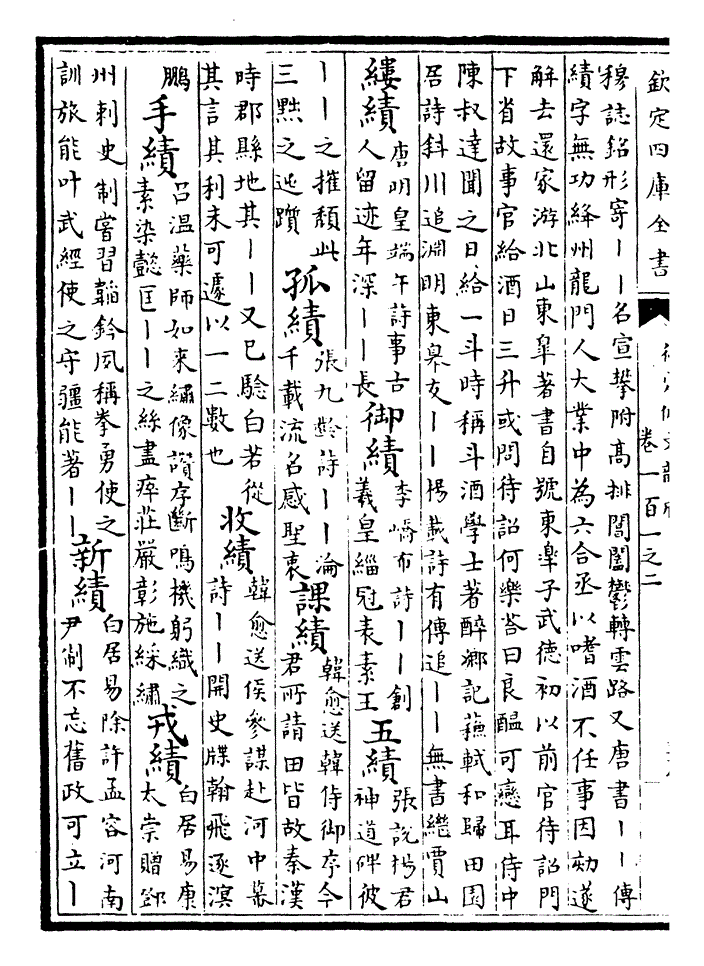 欽定四庫全書
卷一百一之二
穆誌銘形寄丨丨名宣摯附髙排閶闔鬱轉雲路又唐書丨丨傳
績字無功絳州龍門人大業中為六合丞以嗜酒不任事因劾遂
解去還家游北山東臯著書自號東臯子武德初以前官待詔門
下省故事官給酒日三升或問待詔何樂荅曰良醖可戀耳侍中
陳叔達聞之日給一斗時稱斗酒學士著醉鄉記蘇軾和歸田園
居詩斜川追淵明東臯友丨丨楊載詩有傳追丨丨無書繼賈山
縷績
唐明皇端午詩事古
人留迹年深丨丨長
御績
李嶠布詩丨丨創
羲皇緇冠表素王
五績
張説楊君
神道碑彼
丨丨之摧頽此
三㸃之逃躓
孤績
張九齡詩丨丨淪
千載流名感聖衷
課績
韓愈送韓侍御序今
君所請田皆故秦漢
時郡縣地其丨丨又已驗白若從
其言其利未可遽以一二數也
收績
韓愈送侯參謀赴河中幕
詩丨丨開史牒翰飛逐溟
鵬
手績
吕温藥師如來繡像讃序斷鳴機躬織之
素染懿匡丨丨之絲盡瘁莊嚴彰施綵繡
戎績
白居易康
太崇贈鄧
州刺史制嘗習韜鈐夙稱拳勇使之
訓旅能叶武經使之守疆能著丨丨
新績
白居易除許孟容河南
尹制不忘舊政可立丨